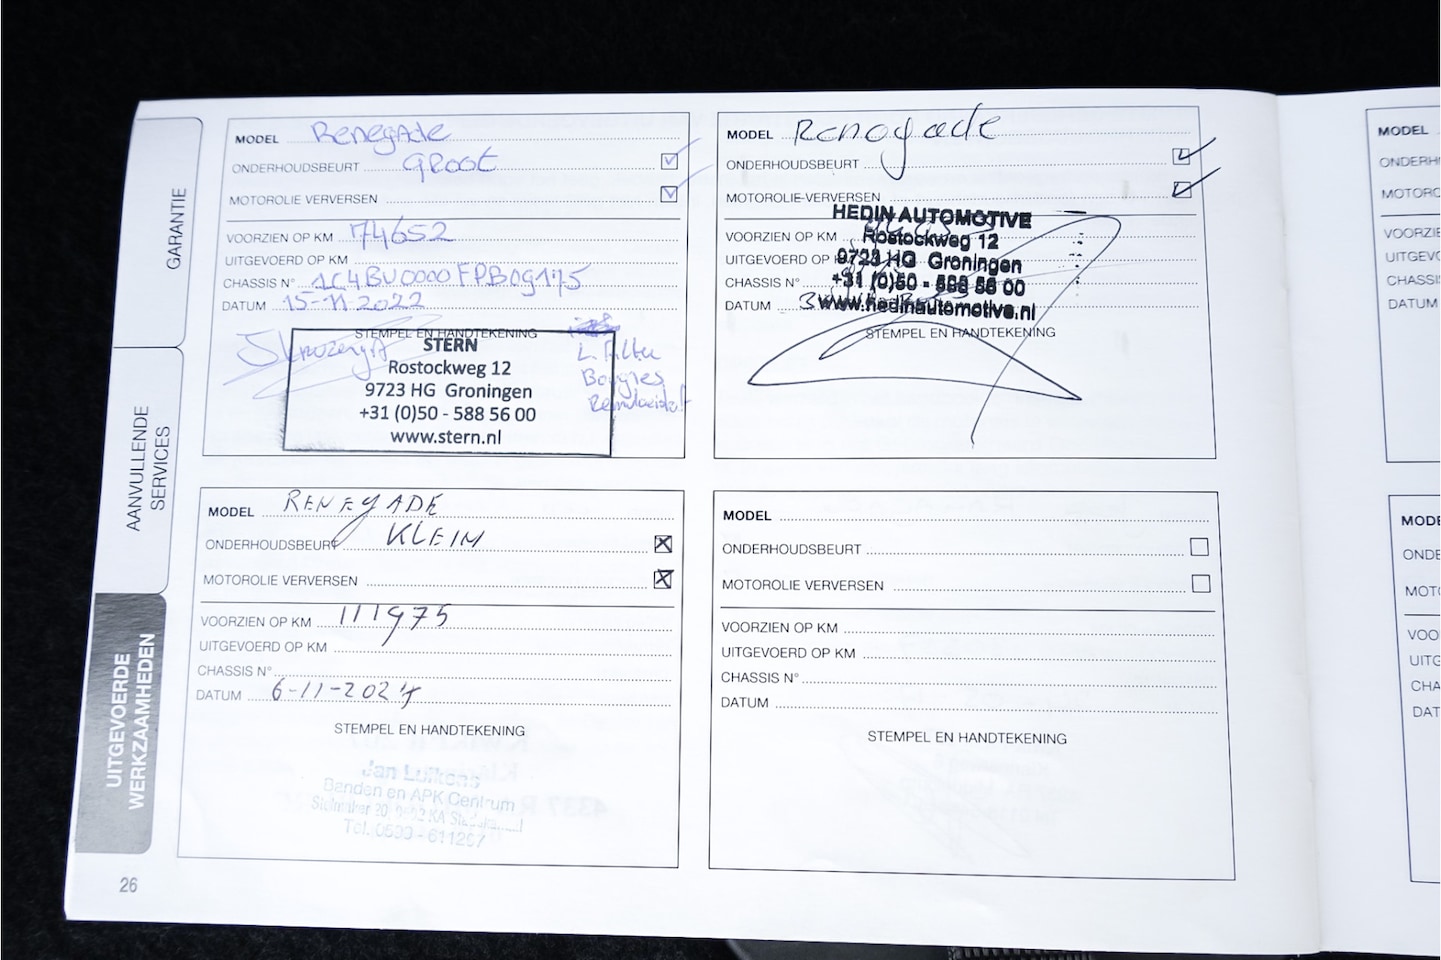 GARANTIE
AANVULLENDE
SERVICES
UITGEVOERDE
WERKZAAMHEDEN
MODEL Renegade
ONDERHOUDSBEURT GROOT
MOTOROLIE VERVERSEN
VOORZIEN OP KM 74652
UITGEVOERD OP KM
CHASSIS N° 1C4BU0000FPB09175
DATUM 15-11-2022
STEMPEL EN HANDTEKENING
STERN
Rostockweg 12
9723 HG Groningen
+31 (0)50 - 588 56 00
www.stern.nl
L. Filter
Bougies
Remvloeistof
MODEL Renegade
ONDERHOUDSBEURT
MOTOROLIE-VERVERSEN
HEDIN AUTOMOTIVE
VOORZIEN OP KM
Rostockweg 12
UITGEVOERD OP
9723 HG Groningen
CHASSIS N°
+31 (0)50 - 588 56 00
DATUM
www.hedinautomotive.nl
STEMPEL EN HANDTEKENING
MODEL RENEGADE
ONDERHOUDSBEURT KLEIN
MOTOROLIE VERVERSEN
VOORZIEN OP KM 111975
UITGEVOERD OP KM
CHASSIS N°
DATUM 6-11-2024
STEMPEL EN HANDTEKENING
Jan Luikens
Banden en APK Centrum
Tel. 0599 - 611267
MODEL
ONDERHOUDSBEURT
MOTOROLIE VERVERSEN
VOORZIEN OP KM
UITGEVOERD OP KM
CHASSIS N°
DATUM
STEMPEL EN HANDTEKENING
26
MODEL
ONDERH
MOTORO
VOORZIE
UITGEVO
CHASSI
DATUM
MODE
ONDE
MOTO
VOO
UITG
CHA
DAT